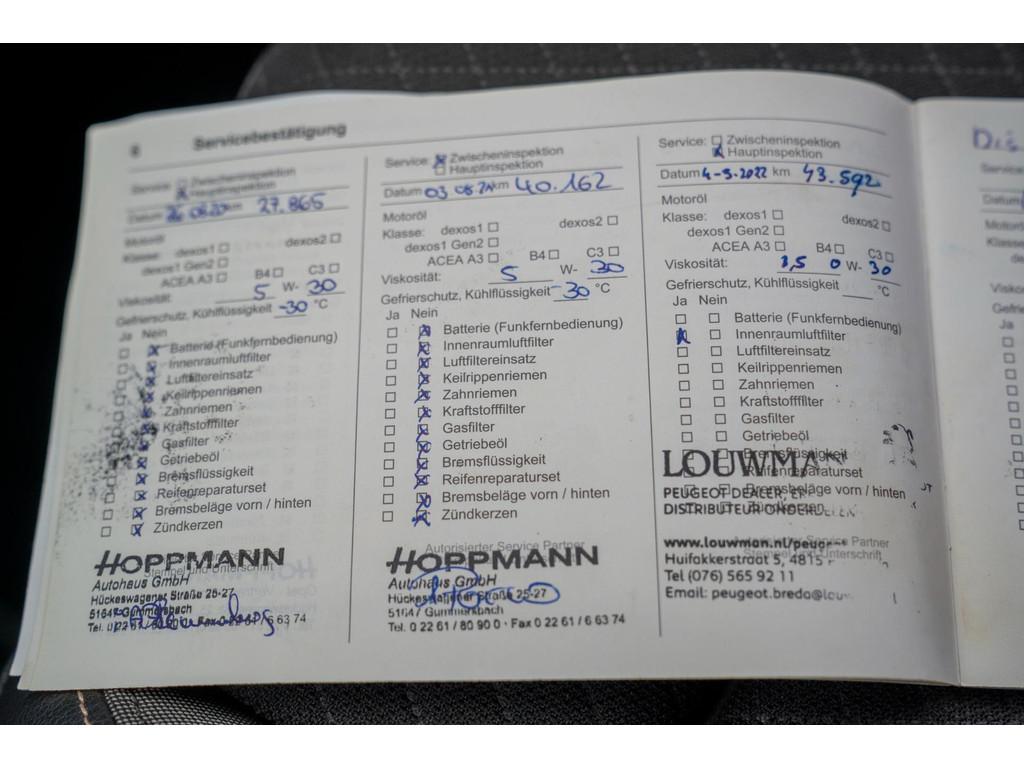 Servicebestätigung
Service: Zwischeninspektion
Hauptinspektion
Datum km 27.865
Motoröl
Klasse: dexos1 dexos2
dexos1 Gen2
ACEA A3 B4 C3
Viskosität: 5 W- 30
Gefrierschutz, Kühlflüssigkeit -30 °C
Ja Nein
Batterie (Funkfernbedienung)
Innenraumluftfilter
Luftfiltereinsatz
Keilrippenriemen
Zahnriemen
Kraftstofffilter
Gasfilter
Getriebeöl
Bremsflüssigkeit
Reifenreparaturset
Bremsbeläge vorn / hinten
Zündkerzen
HOPPMANN
Stempel und Unterschrift
Autohaus GmbH
Hückeswagener Straße 25-27
51647 Gummersbach
Tel. 0 22 61 / 80 90 0 · Fax 0 22 61 / 6 63 74
Service: Zwischeninspektion
Hauptinspektion
Datum 03 08 21 km 40.162
Motoröl
Klasse: dexos1 dexos2
dexos1 Gen2
ACEA A3 B4 C3
Viskosität: 5 W- 30
Gefrierschutz, Kühlflüssigkeit -30 °C
Ja Nein
Batterie (Funkfernbedienung)
Innenraumluftfilter
Luftfiltereinsatz
Keilrippenriemen
Zahnriemen
Kraftstofffilter
Gasfilter
Getriebeöl
Bremsflüssigkeit
Reifenreparaturset
Bremsbeläge vorn / hinten
Zündkerzen
Autorisierter Service Partner
HOPPMANN
Autohaus GmbH
Hückeswagener Straße 25-27
51647 Gummersbach
Tel. 0 22 61 / 80 90 0 · Fax 0 22 61 / 6 63 74
Service: Zwischeninspektion
Hauptinspektion
Datum 4-3-2022 km 43.592
Motoröl
Klasse: dexos1 dexos2
dexos1 Gen2
ACEA A3 B4 C3
Viskosität: 3,5 0 W- 30
Gefrierschutz, Kühlflüssigkeit °C
Ja Nein
Batterie (Funkfernbedienung)
Innenraumluftfilter
Luftfiltereinsatz
Keilrippenriemen
Zahnriemen
Kraftstofffilter
Gasfilter
Getriebeöl
Bremsflüssigkeit
LOUWMAN
Reifenreparaturset
PEUGEOT DEALER, Bremsbeläge vorn / hinten
DISTRIBUTEUR ONDERDELEN
Service Partner
www.louwman.nl/peugeot
Stempel und Unterschrift
Huifakkerstraat 5, 4815
Tel (076) 565 92 11
Email: peugeot.breda@louw